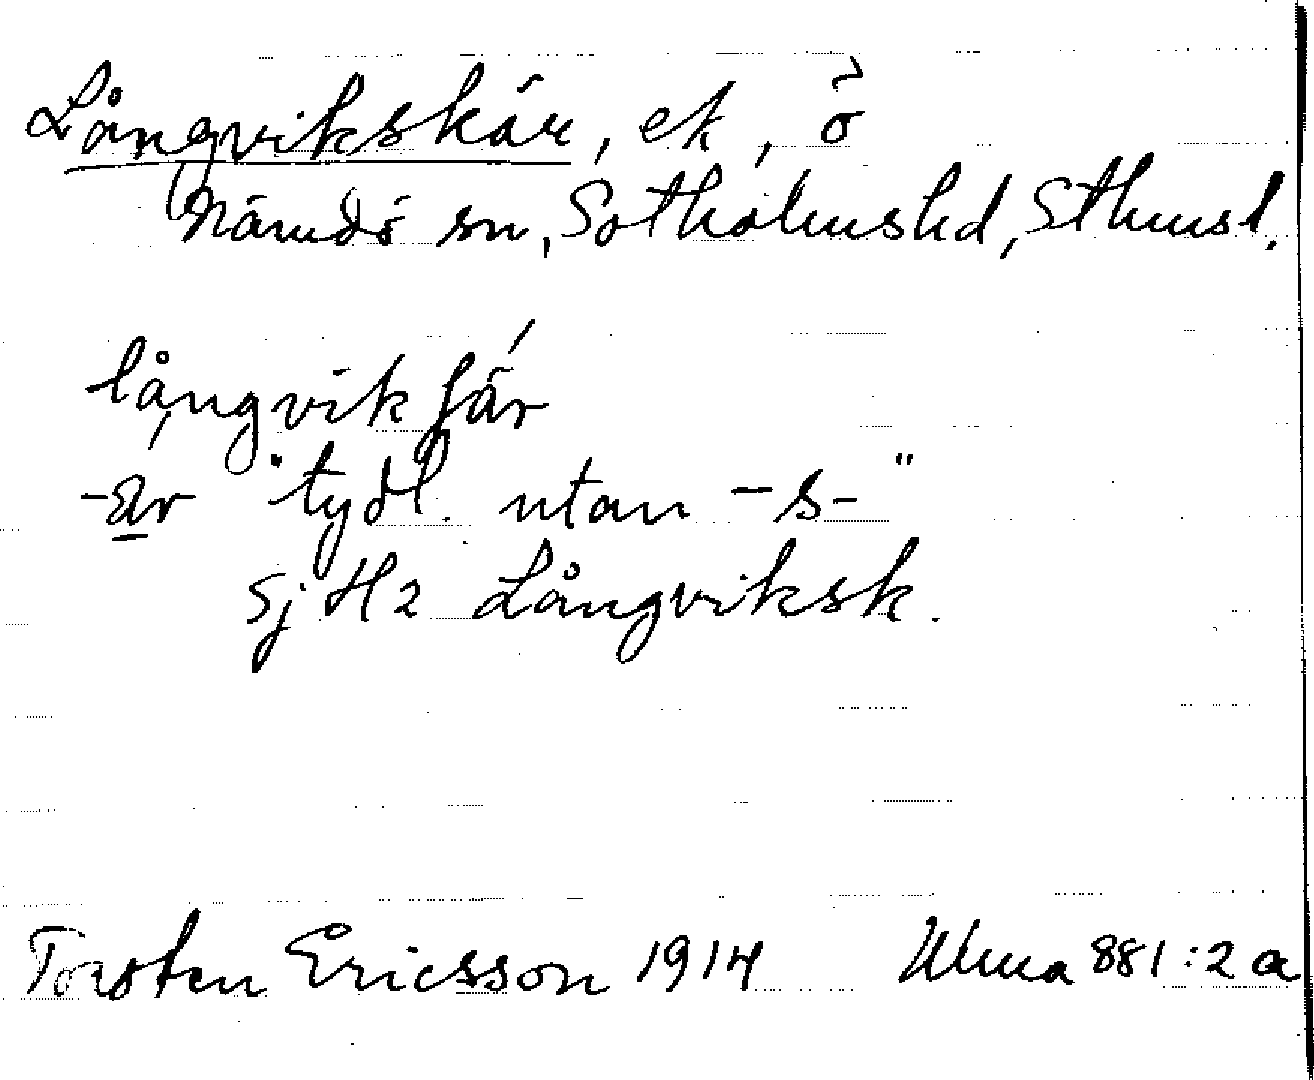 Långvikskär, ek, ö
Nämdö sn, Sotholmshd, Sthmsl.
långvikʃär
-är "tydl. utan -s-"
Sj H2 Långviksk.
Torsten Ericsson 1914 Ulma 881:2a